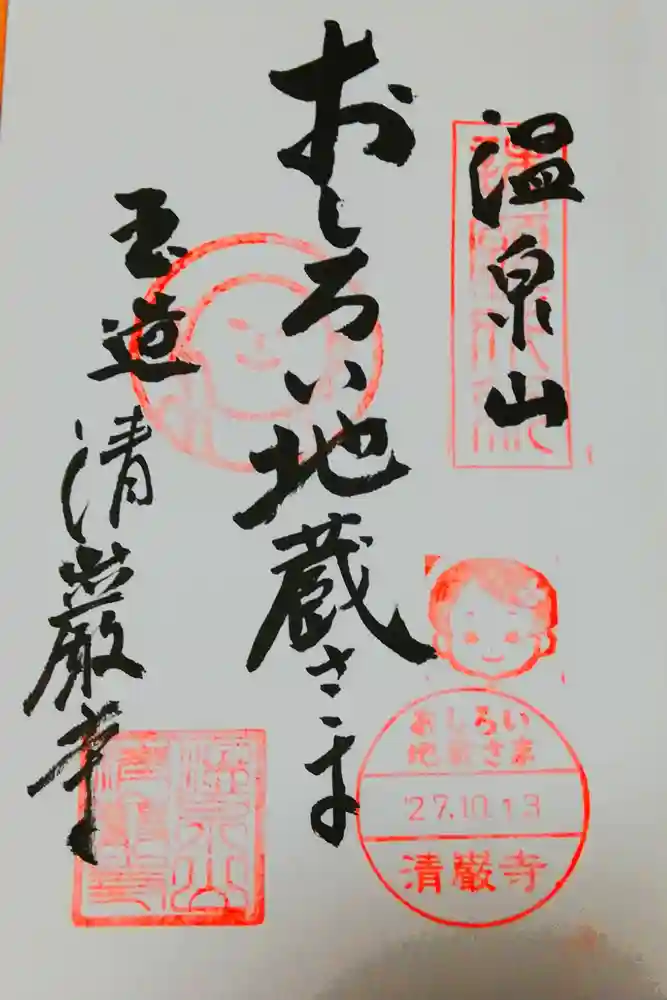 温泉山
おしろい地蔵さま
玉造 清巌寺
おしろい
地蔵さま
'27.10.13
清巌寺